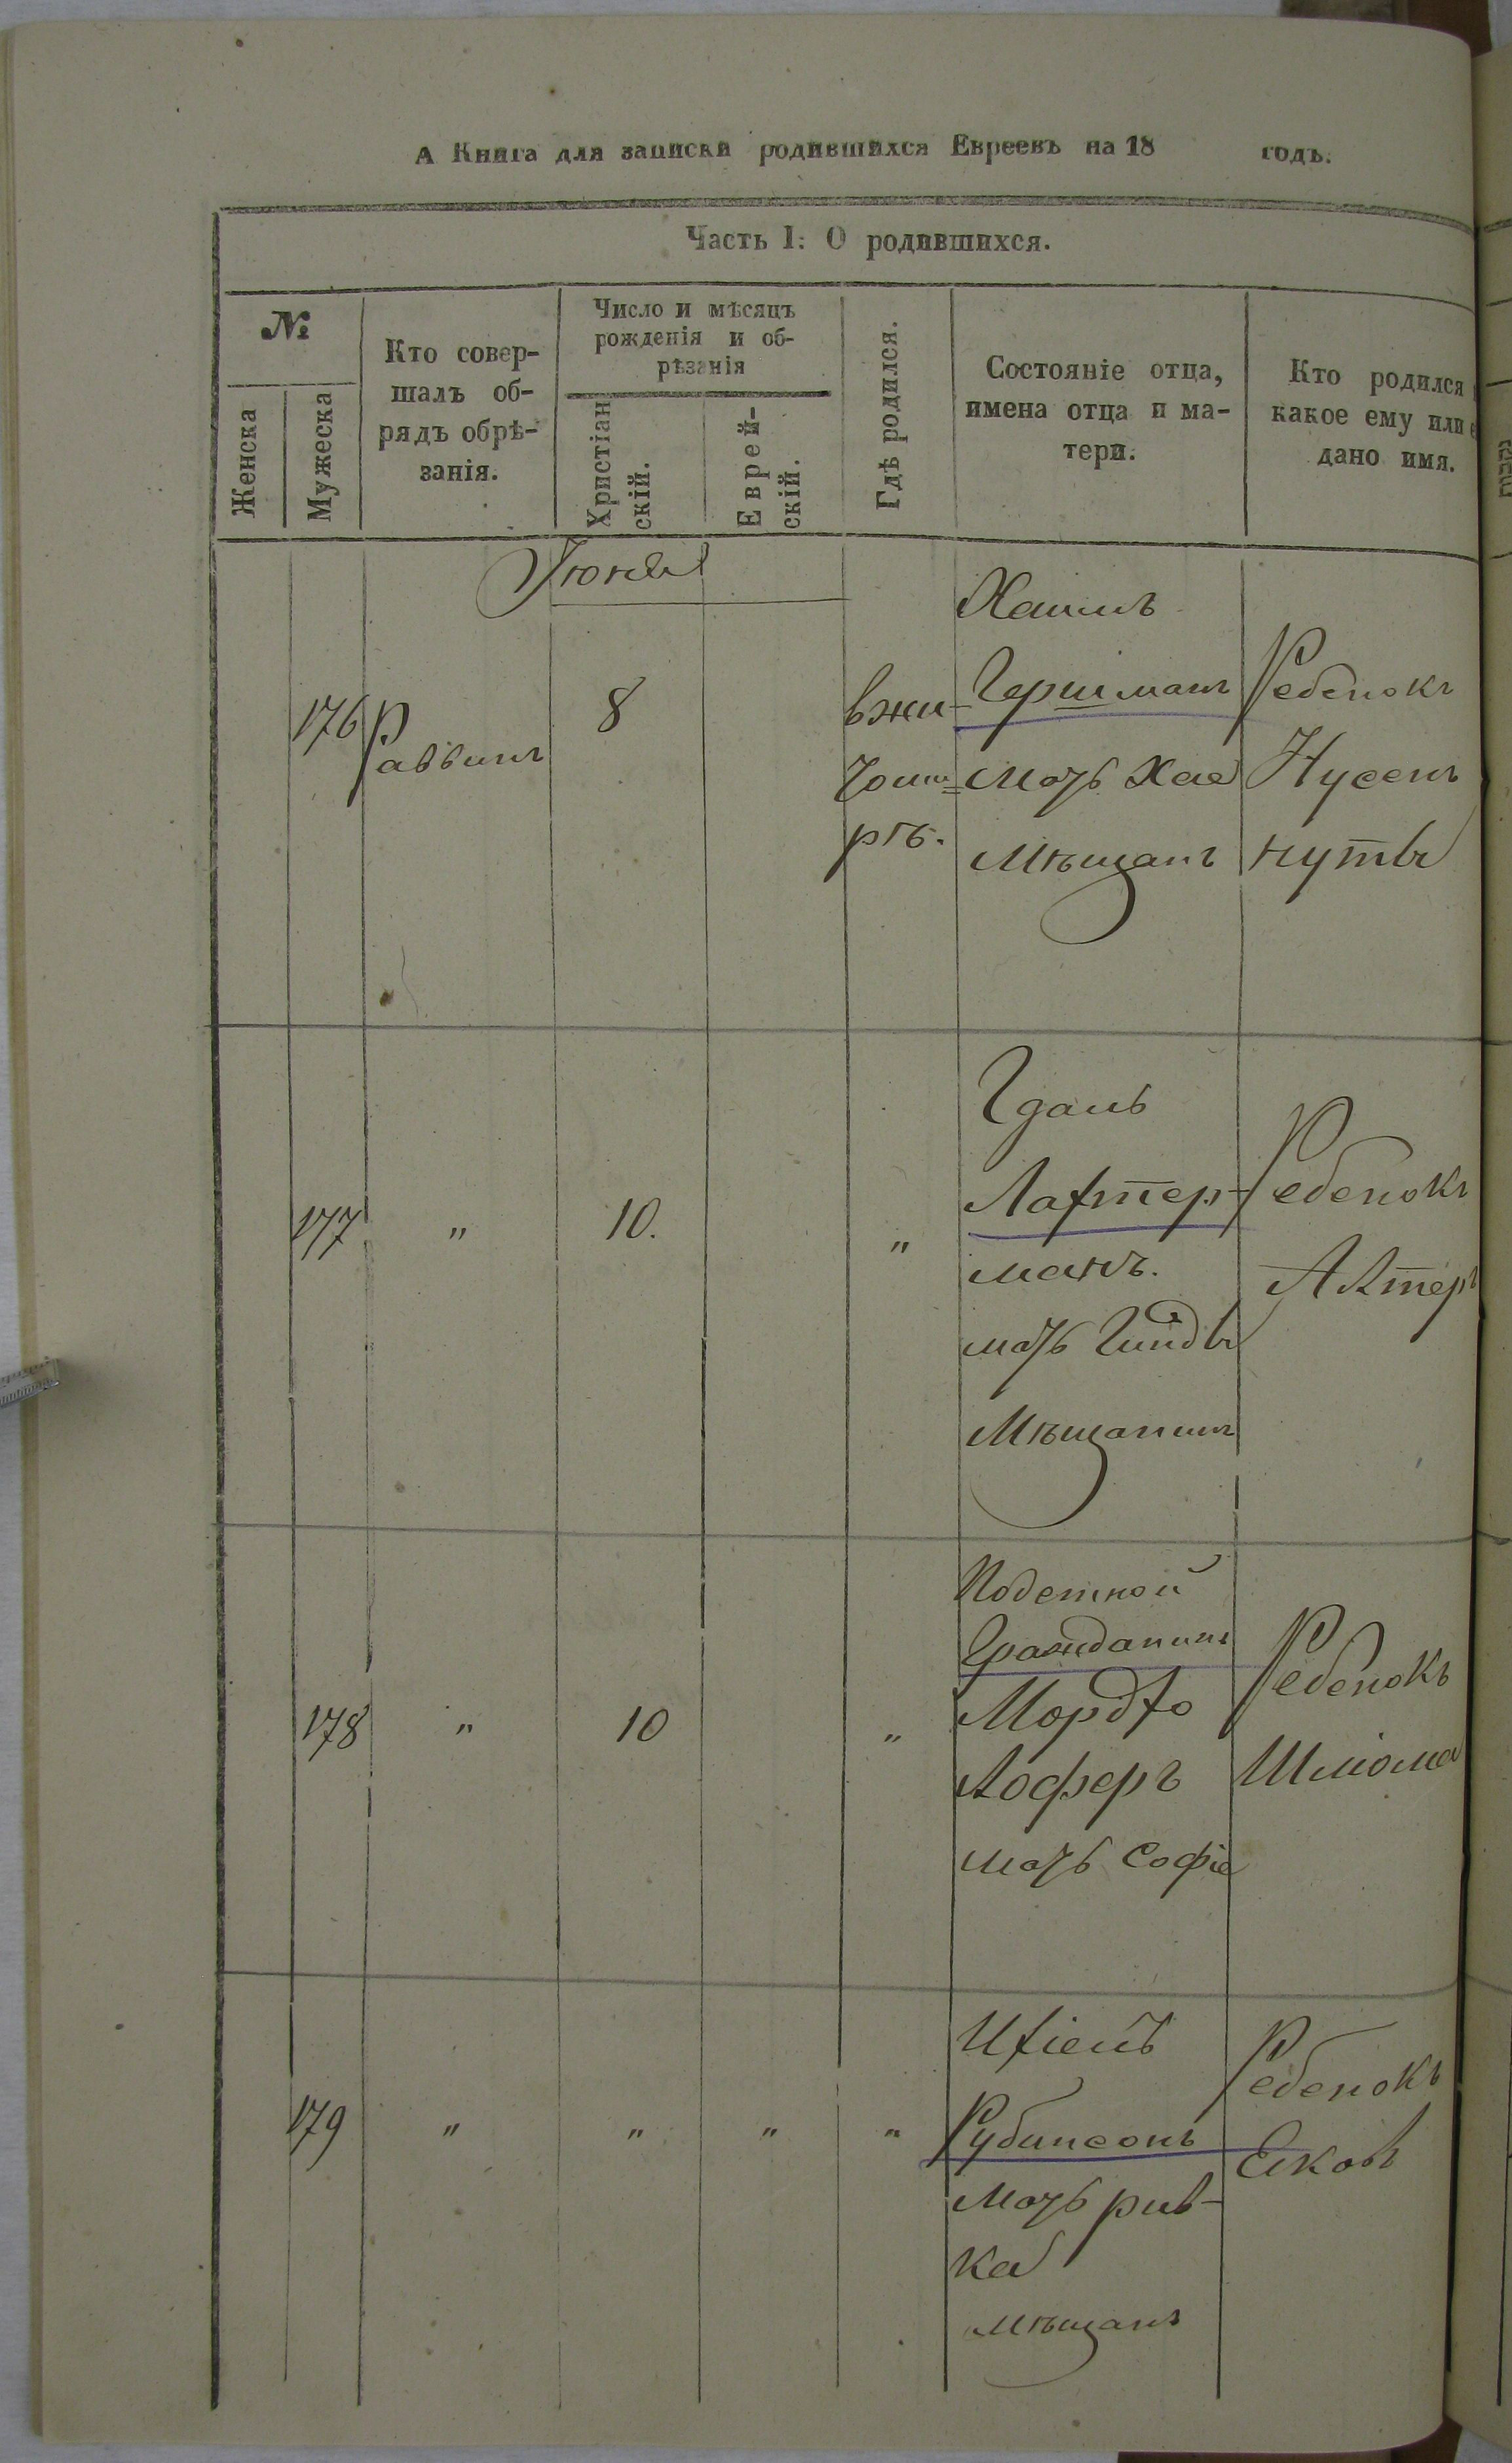 А Книга для записки родившихся Евреевъ на 18 годъ.
Часть I: О родившихся.
№
Женска
Мужеска
Кто совер-
шалъ об-
рядъ обрѣ-
занія.
Число и мѣсяцъ
рожденія и об-
рѣзанія
Христіан
скій.
Еврей-
скій.
Гдѣ родился.
Состояніе отца,
имена отца и ма-
тери.
Кто родился
какое ему или
дано имя.
Июня
176
Раввинъ
8
вжи-
томи=
рѣ.
Хаимъ
Гершманъ
мать Хая
Мѣщанъ
Ребенокъ
Нусенъ
нута
177
"
10.
"
Гдаль
Лахтер-
манъ.
мать Гинда
Мѣщанинъ
Ребенокъ
Алтеръ
178
"
10
"
Подетной
Гражданинъ
Мордхо
мать Софіе
Ребенокъ
Шліома
179
"
"
"
"
Ихіель
Рубинсонъ
мать рив-
ка
мѣщанъ
Ребенокъ